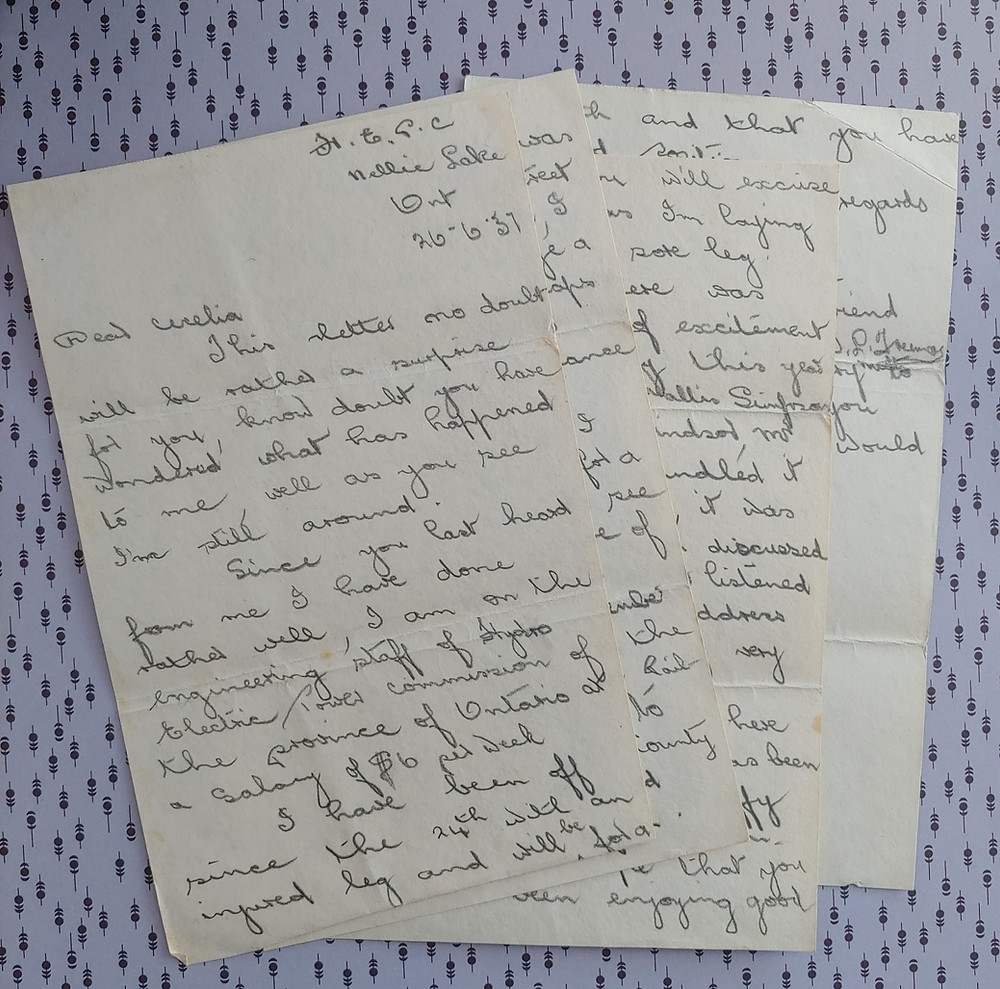 H.E.P.C
Nellie Lake
Ont
26-6-37
Dear Cecelia
This letter no doubt
will be rather a surprise
for you, know doubt you have
wondered what has happened
to me, well as you see
I'm still around.
Since you last heard
from me I have done
rather well, I am on the
engineering staff of Hydro
Electric Power commission of
the province of Ontario at
a salary of $6 per week
I have been off
since the 24th with an
injured leg and will be for a
was
I
a
aps
ance
I
for a
see
of
the
Rail
to
ounty
d
will excuse
I'm laying
sore leg
ere was
of excitement
this year
Wallis Simpson
indsor, Mr
ndled it
it was
discussed
listened
ddress
very
here
as been
fy
that you
been enjoying good
h and that you have
regards
riend
to
you
would